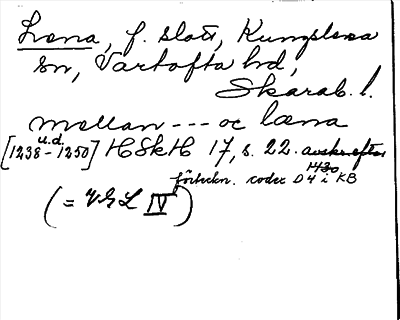 Læna, f. slott, Kungslena
sn, Vartofta hd,
Skarab. l.
mællan --- oc læna
u.d.
[1238-1250] HSkH 17, s. 22. avskr. efter
1430
förteckn. codex D 4 i KB
(= VGL IV)